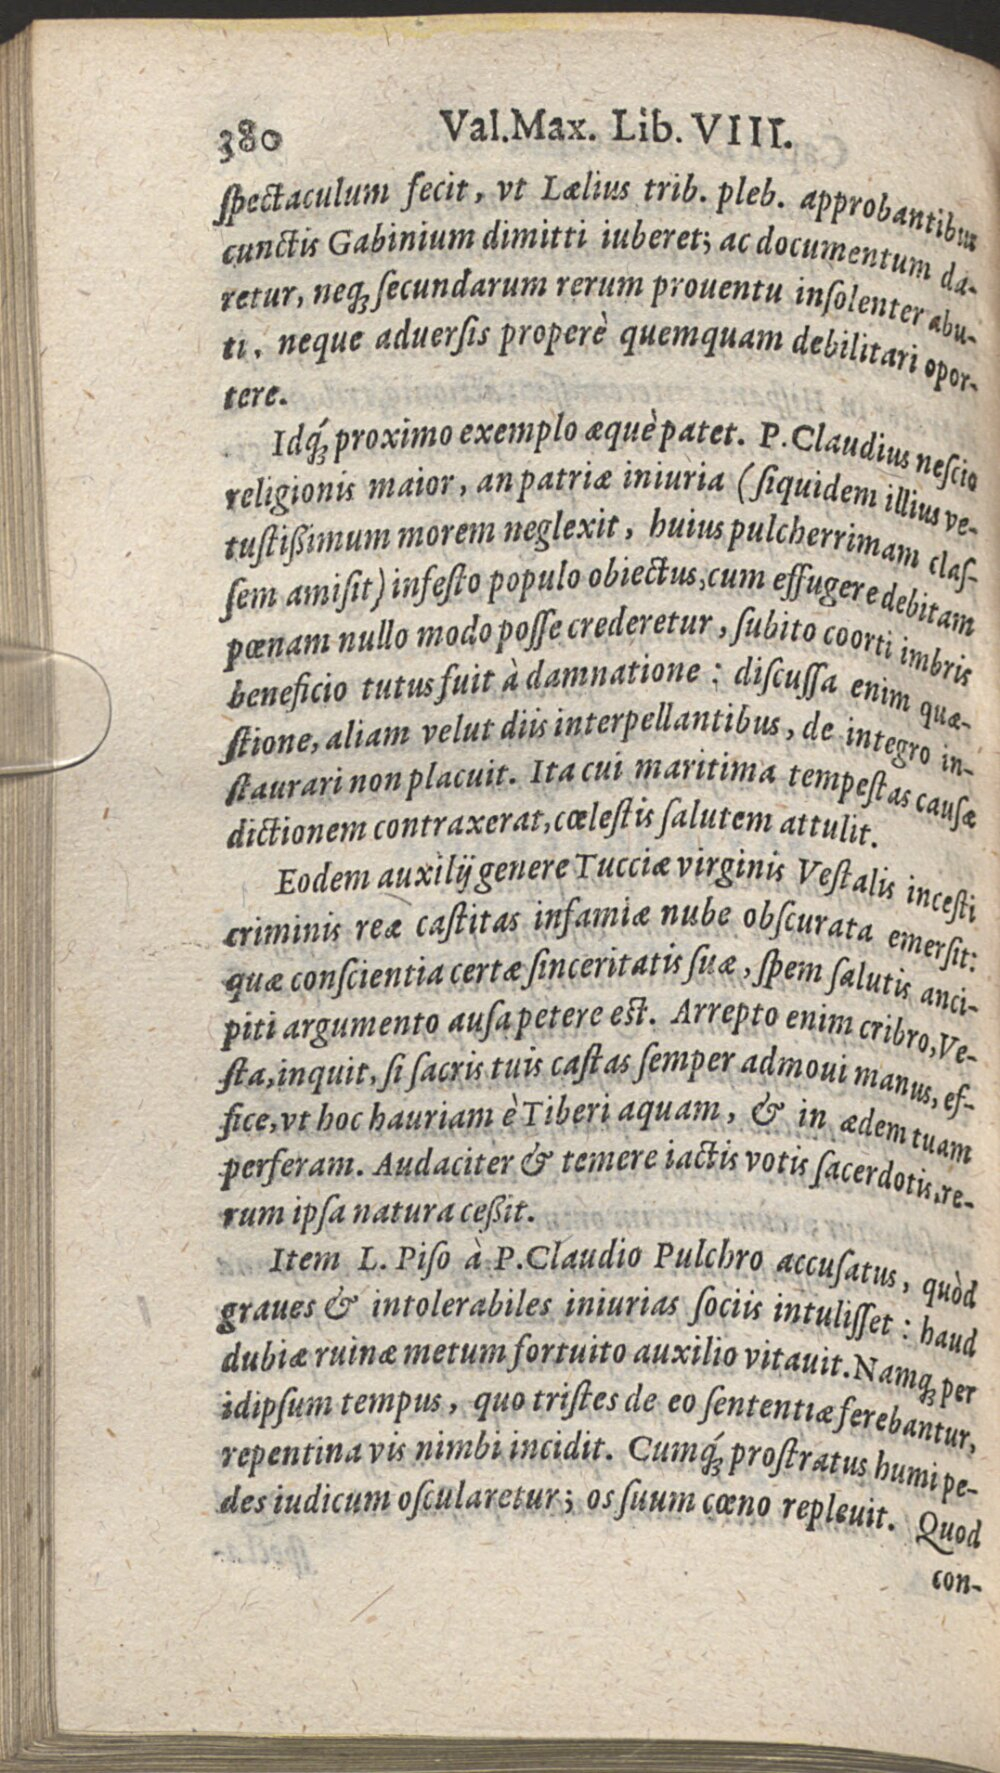 380 Val.Max. Lib. VIII.
ſpectaculum fecit, vt Lælius trib. pleb. approbantibus
cunctis Gabinium dimitti iuberet; ac documentum da-
retur, neq; ſecundarum rerum prouentu inſolenter abu-
ti, neque aduerſis properè quemquam debilitari opor-
tere.
Idq́; proximo exemplo æquè patet. P. Claudius neſcio
religionis maior, an patriæ iniuria (ſiquidem illius ve-
tuſtißimum morem neglexit, huius pulcherrimam claſ-
ſem amiſit) infeſto populo obiectus, cum effugere debitam
pœnam nullo modo poſſe crederetur, ſubito coorti imbris
beneficio tutus fuit à damnatione: diſcuſſa enim quæ-
ſtione, aliam velut diis interpellantibus, de integro in-
ſtaurari non placuit. Ita cui maritima tempeſtas causæ
dictionem contraxerat, cœleſtis ſalutem attulit.
Eodem auxilij genere Tucciæ virginis Veſtalis inceſti
criminis reæ caſtitas infamiæ nube obſcurata emerſit:
quæ conſcientia certæ ſinceritatis ſuæ, ſpem ſalutis anci-
piti argumento auſa petere eſt. Arrepto enim cribro, Ve-
ſta, inquit, ſi ſacris tuis caſtas ſemper admoui manus, ef-
fice, vt hoc hauriam è Tiberi aquam, & in ædem tuam
perferam. Audaciter & temere iactis votis ſacerdotis, re-
rum ipſa natura ceßit.
Item L. Piſo à P. Claudio Pulchro accuſatus, quòd
graues & intolerabiles iniurias ſociis intuliſſet: haud
dubiæ ruinæ metum fortuito auxilio vitauit. Namq; per
idipſum tempus, quo triſtes de eo ſententiæ ferebantur,
repentina vis nimbi incidit. Cumq́; proſtratus humi pe-
des iudicum oſcularetur; os ſuum cœno repleuit. Quod
con-